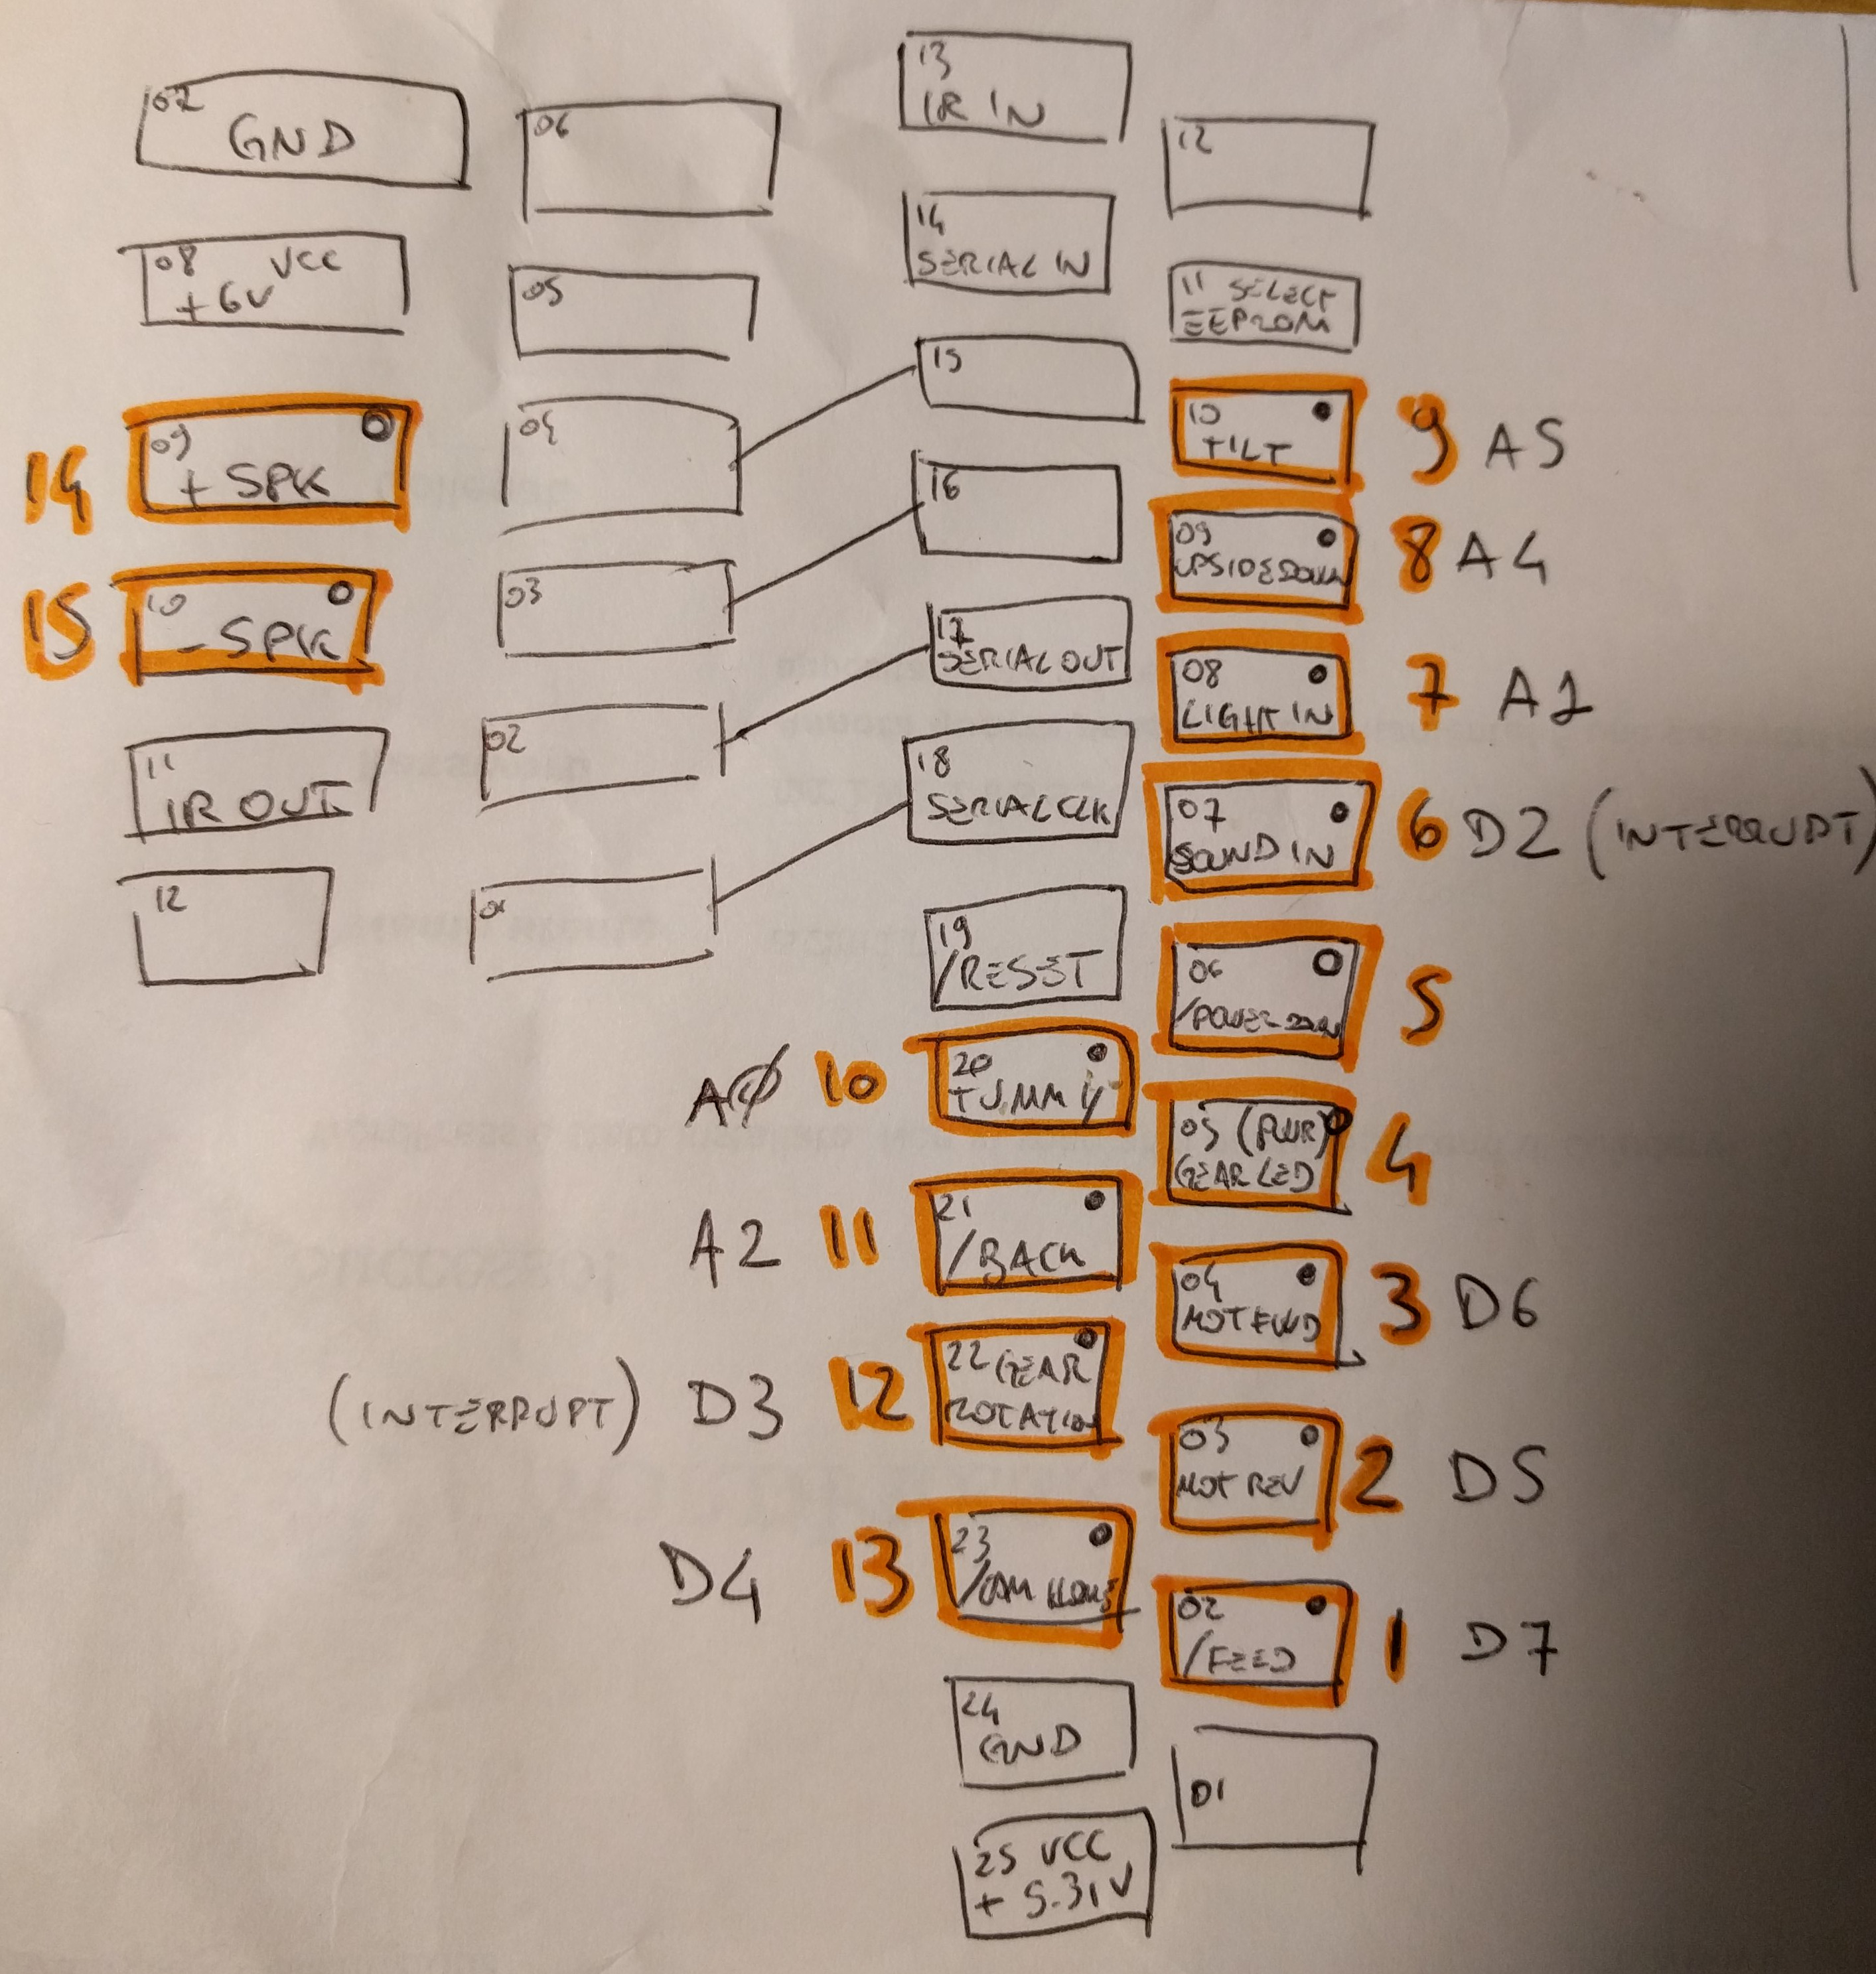 07
GND
08 VCC
+6V
14
09
+ SPK
15
10
- SPK
11
IR OUT
12
06
05
04
03
02
01
13
IR IN
14
SERIAL IN
15
16
17
SERIAL OUT
18
SERIAL CLK
19
/RESET
A0 10
20
TUMMY
A2 11
21
/BACK
(INTERRUPT) D3 12
22 GEAR
ROTATION
D4 13
23
/CAM HOME
24
GND
25 VCC
+ 5.31V
12
11 SELECT
EEPROM
10
TILT
9 A5
09
UPSIDEDOWN
8 A4
08
LIGHT IN
7 A1
07
SOUND IN
6 D2 (INTERRUPT)
06
/POWER-DOWN
5
05 (PWR)
GEAR LED
4
04
MOT FWD
3 D6
03
MOT REV
2 D5
02
/FEED
1 D7
01